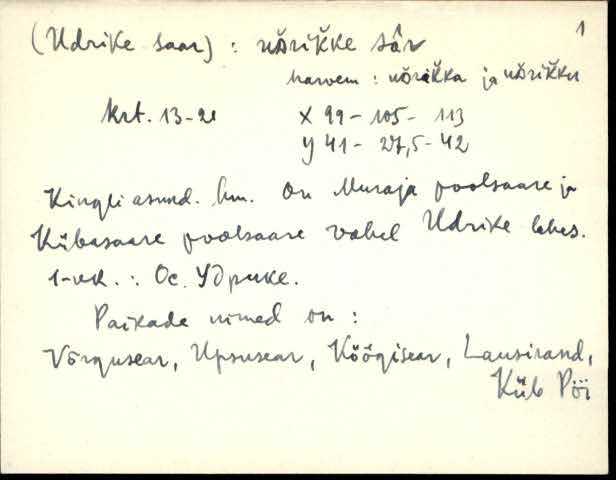 1
(Udrike saar) : uǒrikke sâr
harvem : uǒrikka ja uǒrikku
krt. 13-21 X 99 - 105 - 113
y 41 - 27,5 - 42
Kingli asund. hm. On Muraja poolsaare ja
Kübasaare poolsaare vahel Udrike lahes.
1-vrk. : Ос. Удрике.
Paikade nimed on :
Võrgusear, Upsusear, Köögisear, Lausirand,
Küb Pöi